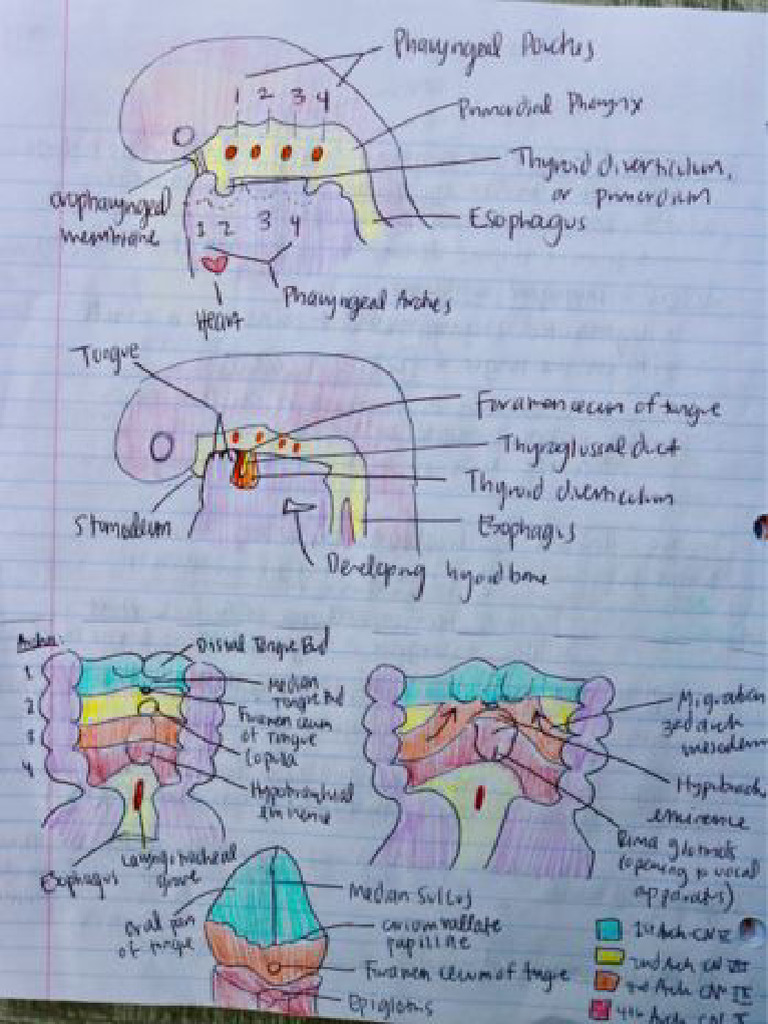 Pharyngeal Pouches
1 2 3 4
Primordial Pharynx
Thyroid diverticulum,
or primordium
oropharyngeal
membrane
Esophagus
1 2 3 4
Pharyngeal Arches
Heart
Tongue
Foramen cecum of tongue
Thyroglossal duct
Thyroid diverticulum
Stomodeum
Esophagus
Developing hyoid bone
Arches:
Distal Tongue Bud
1
Median
Tongue Bud
2
Foramen cecum
of Tongue
3
Copula
4
Hypobranchial
eminence
Laryngotracheal
groove
Esophagus
Migration
3rd arch
mesoderm
Hypobranch
eminence
Rima glottidis
(opening to vocal
apparatus)
Median Sulcus
Oral part
of tongue
circumvallate
papillae
Foramen cecum of tongue
Epiglottis
1st Arch CN V
2nd Arch CN VII
3rd Arch CN IX
4th Arch CN X